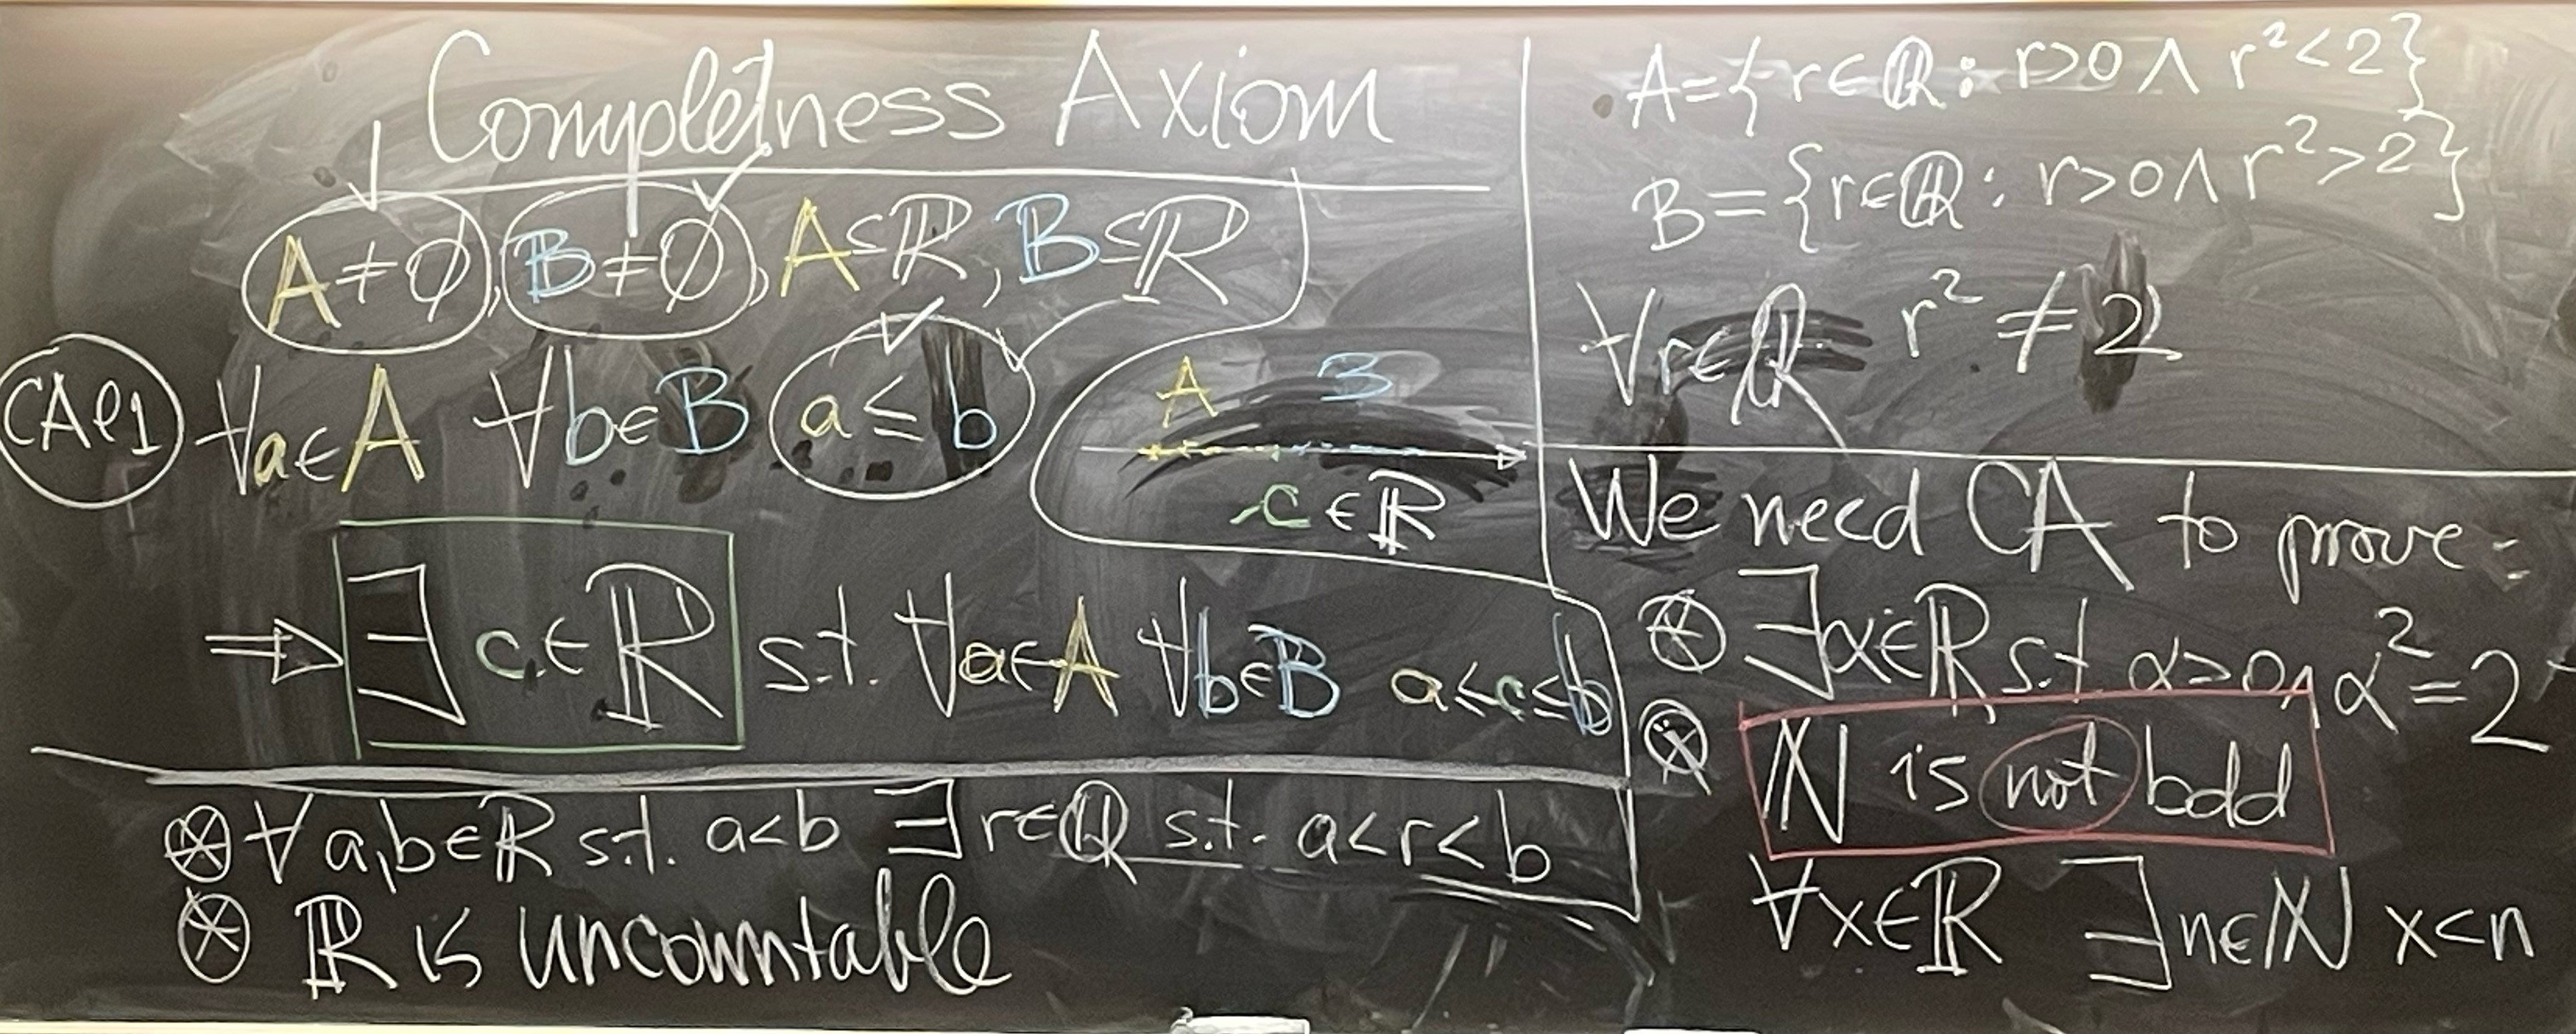 Completness Axiom
A ≠ ∅, B ≠ ∅, A ⊆ ℝ, B ⊆ ℝ
∀a∈A ∀b∈B a ≤ b
A B
c ∈ ℝ
⇒ ∃ c ∈ ℝ s.t. ∀a∈A ∀b∈B a ≤ c ≤ b
⊛ ∀ a,b∈ℝ s.t. a<b ∃ r∈ℚ s.t. a<r<b
⊛ ℝ is uncountable
A={r∈ℚ : r>0 ∧ r²<2}
B={r∈ℚ : r>0 ∧ r²>2}
∀r∈ℚ r² ≠ 2
We need CA to prove:
⊛ ∃α∈ℝ s.t α>0 ∧ α²=2
⊛ ℕ is not bdd
∀x∈ℝ ∃n∈ℕ x<n